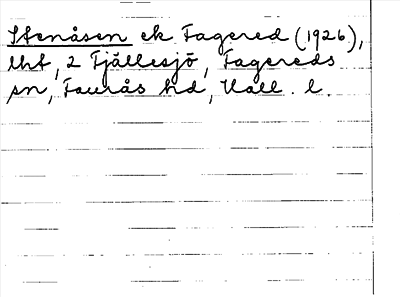 Stenåsen ek Fagered (1926),
lht, 2 Fjällesjö, Fagereds
sn, Faurås hd, Hall. l.